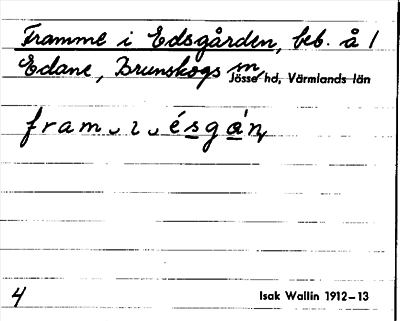 Framme i Edsgården, beb. å 1
Edane, Brunskogs sn,
Jösse hd, Värmlands län
fram ˬ ɩ ˬ ésgán
4
Isak Wallin 1912–13